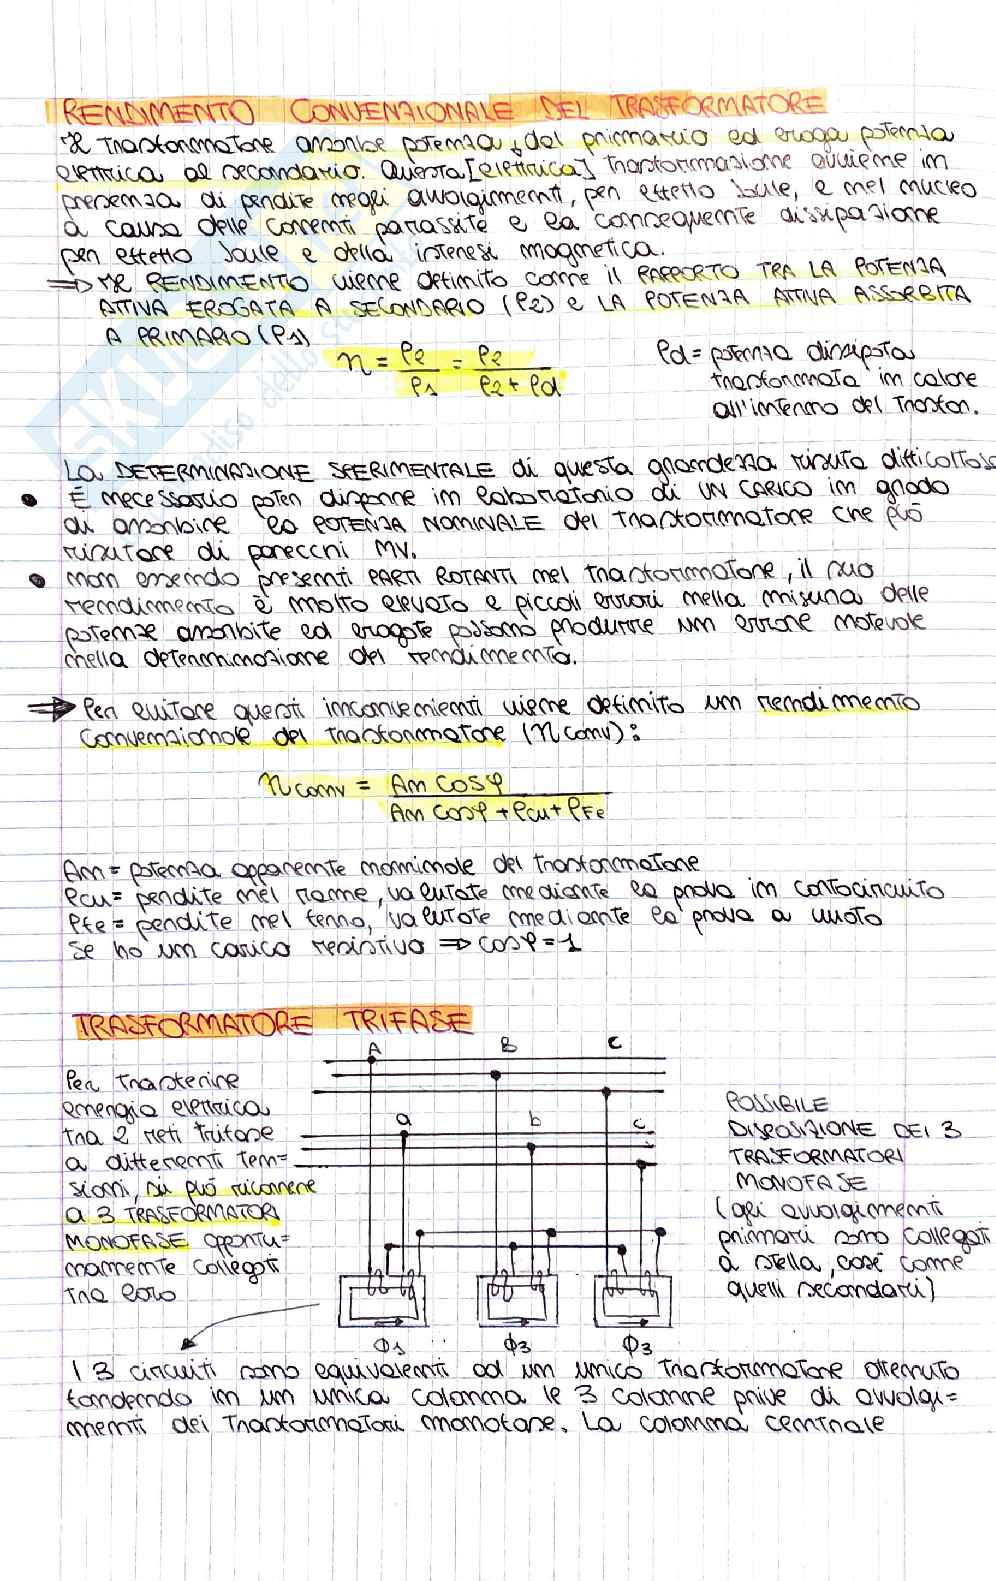 RENDIMENTO CONVENZIONALE DEL TRASFORMATORE
Il trasformatore assorbe potenza dal primario ed eroga potenza
elettrica al secondario. Questa [elettrica] trasformazione avviene in
presenza di perdite negli avvolgimenti, per effetto Joule, e nel nucleo
a causa delle correnti parassite e la conseguente dissipazione
per effetto Joule e della isteresi magnetica.
⇒ Il RENDIMENTO viene definito come il RAPPORTO TRA LA POTENZA
ATTIVA EROGATA A SECONDARIO (P2) e LA POTENZA ATTIVA ASSORBITA
A PRIMARIO (P1)
η = P2/P1 = P2/(P2 + Pd)
Pd = potenza dissipata
trasformata in calore
all'interno del trasfor.
La DETERMINAZIONE SPERIMENTALE di questa grandezza risulta difficoltosa
• È necessario poter disporre in laboratorio di UN CARICO in grado
di assorbire la POTENZA NOMINALE del trasformatore che può
risultare di parecchi MV.
• non essendo presenti PARTI ROTANTI nel trasformatore, il suo
rendimento è molto elevato e piccoli errori nella misura delle
potenze assorbite ed erogate possono produrre un errore notevole
nella determinazione del rendimento.
⇒ Per evitare questi inconvenienti viene definito un rendimento
convenzionale del trasformatore (η conv):
η conv = An cosφ/(An cosφ + Pcu + PFe)
An = potenza apparente nominale del trasformatore
Pcu = perdite nel rame, valutate mediante la prova in cortocircuito
Pfe = perdite nel ferro, valutate mediante la prova a vuoto
Se ho un carico resistivo ⇒ cosφ = 1
TRASFORMATORE TRIFASE
A B C
a b c
Per trasferire
energia elettrica
tra 2 reti trifase
a differenti ten=
sioni, si può ricorrere
a 3 TRASFORMATORI
MONOFASE opportu=
namente collegati
tra loro
POSSIBILE
DISPOSIZIONE DEI 3
TRASFORMATORI
MONOFASE
(gli avvolgimenti
primari sono collegati
a stella, così come
quelli secondari)
Φ1 Φ3 Φ3
I 3 circuiti sono equivalenti ad un unico trasformatore ottenuto
fondendo in un unica colonna le 3 colonne prive di avvolgi=
menti dei trasformatori monofase. La colonna centrale